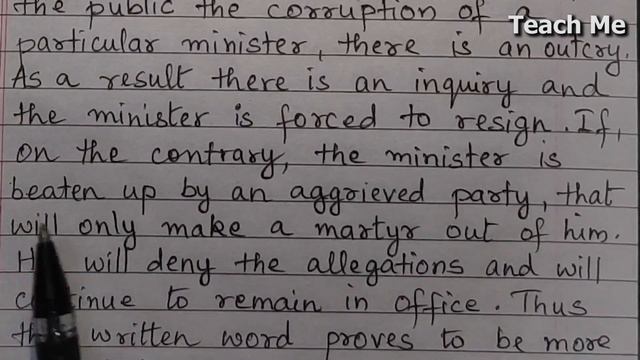 the public the corruption of a
Teach Me
particular minister, there is an outcry.
As a result there is an inquiry and
the minister is forced to resign. If,
on the contrary, the minister is
beaten up by an aggrieved party, that
will only make a martyr out of him.
will deny the allegations and will
to remain in office. Thus
written word proves to be more